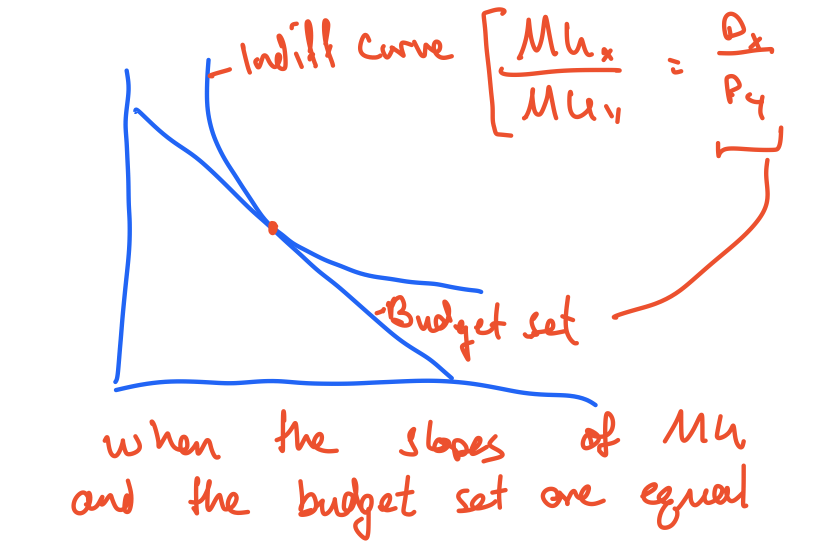 Indiff curve [ MUx / MUy = Px / Py
Budget set
when the slopes of MU
and the budget set are equal